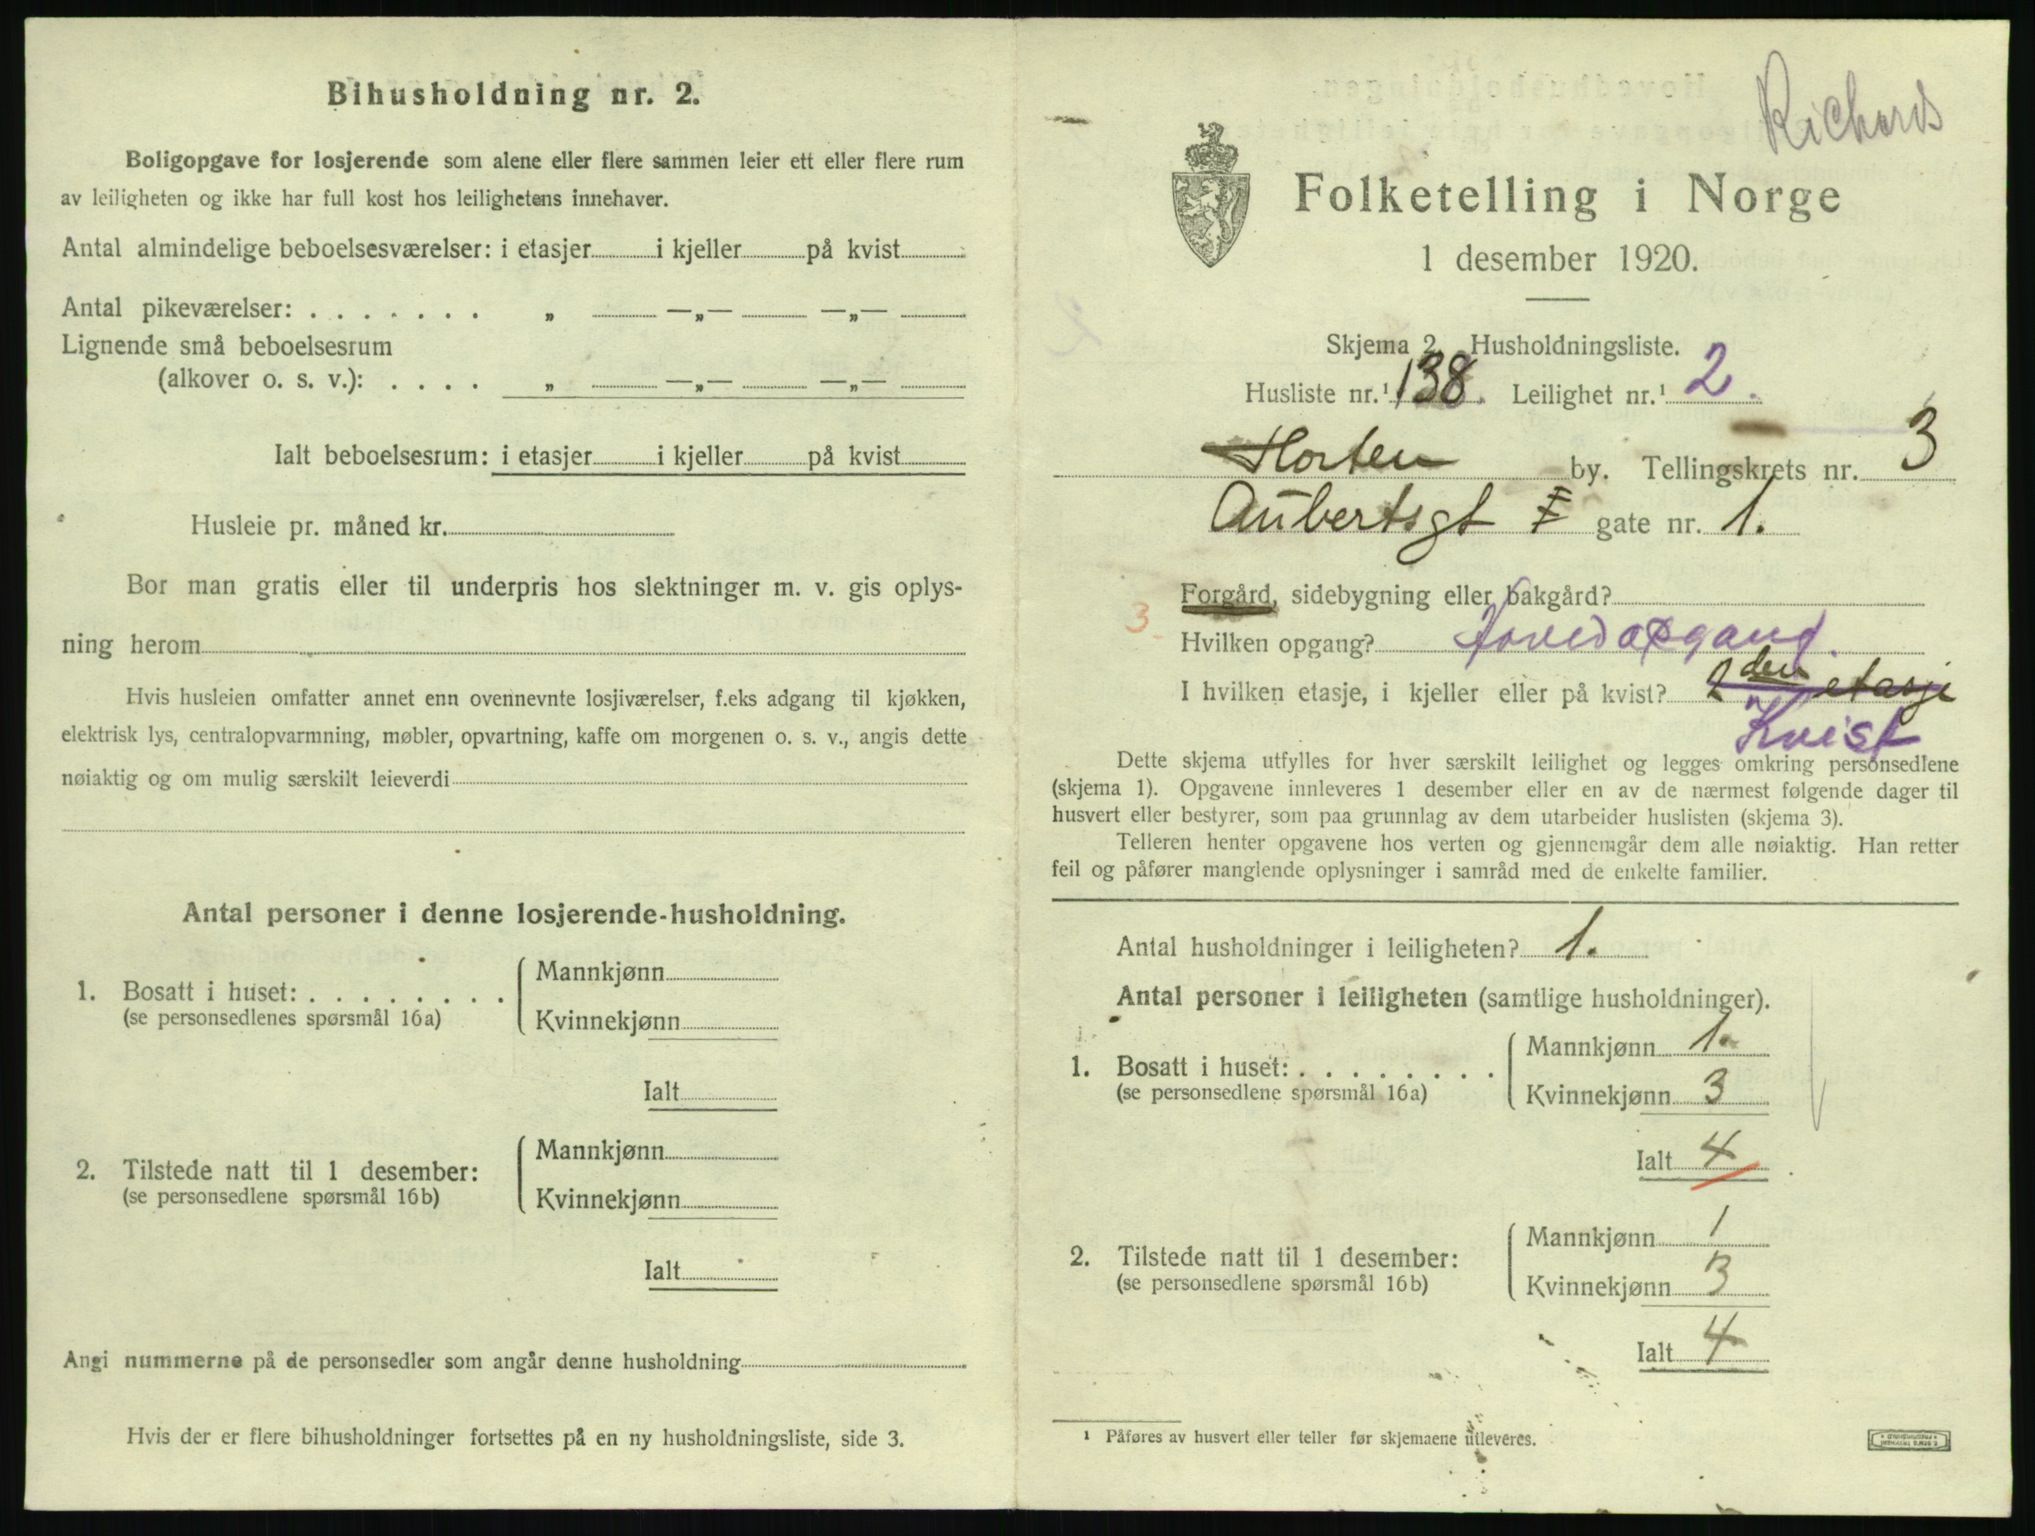 Bihusholdning nr. 2.
Boligopgave for losjerende som alene eller flere sammen leier ett eller flere rum
av leiligheten og ikke har full kost hos leilighetens innehaver.
Antal almindelige beboelsesværelser: i etasjer i kjeller på kvist
Antal pikeværelser: . . . . . . . „ —„— —„—
Lignende små beboelsesrum
(alkover o. s. v.): . . . . „ —„— —„—
Ialt beboelsesrum: i etasjer i kjeller på kvist
Husleie pr. måned kr.
Bor man gratis eller til underpris hos slektninger m. v. gis oplys-
ning herom
Hvis husleien omfatter annet enn ovennevnte losjiværelser, f.eks adgang til kjøkken,
elektrisk lys, centralopvarmning, møbler, opvartning, kaffe om morgenen o. s. v., angis dette
nøiaktig og om mulig særskilt leieverdi
Antal personer i denne losjerende-husholdning.
1. Bosatt i huset: . . . . . . . . Mannkjønn
(se personsedlenes spørsmål 16a) Kvinnekjønn
Ialt
2. Tilstede natt til 1 desember: Mannkjønn
(se personsedlene spørsmål 16b) Kvinnekjønn
Ialt
Angi nummerne på de personsedler som angår denne husholdning
Hvis der er flere bihusholdninger fortsettes på en ny husholdningsliste, side 3.
Richards
Folketelling i Norge
1 desember 1920.
Skjema 2. Husholdningsliste.
Husliste nr.¹ 138. Leilighet nr.¹ 2.
Horten by. Tellingskrets nr. 3
Aubertsgt I gate nr. 1.
Forgård, sidebygning eller bakgård?
3
Hvilken opgang? Hovedopgang.
I hvilken etasje, i kjeller eller på kvist? 2den etasje
Kvist
Dette skjema utfylles for hver særskilt leilighet og legges omkring personsedlene
(skjema 1). Opgavene innleveres 1 desember eller en av de nærmest følgende dager til
husvert eller bestyrer, som paa grunnlag av dem utarbeider huslisten (skjema 3).
Telleren henter opgavene hos verten og gjennemgår dem alle nøiaktig. Han retter
feil og påfører manglende oplysninger i samråd med de enkelte familier.
Antal husholdninger i leiligheten? 1.
Antal personer i leiligheten (samtlige husholdninger).
1. Bosatt i huset: . . . . . . . . Mannkjønn 1.
(se personsedlene spørsmål 16a) Kvinnekjønn 3
Ialt 4
2. Tilstede natt til 1 desember: Mannkjønn 1
(se personsedlene spørsmål 16b) Kvinnekjønn 3
Ialt 4
¹ Påføres av husvert eller teller før skjemaene utleveres.